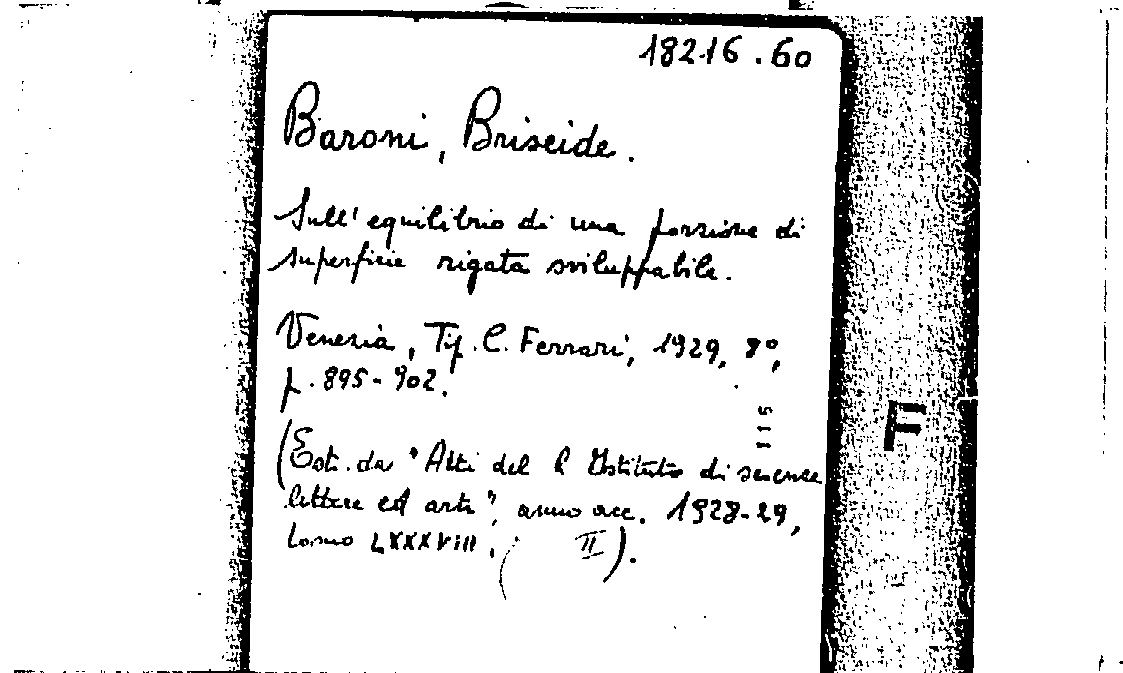 18216.60
Baroni, Briseide.
Sull'equilibrio di una porzione di
superficie rigata sviluppabile.
Venezia, Tip. C. Ferrari, 1929, 8°,
p. 895-902.
115
F
(Estr. da "Atti del R Istituto di scienze
lettere ed arti", anno acc. 1928-29,
tomo LXXXVIII, ( II).